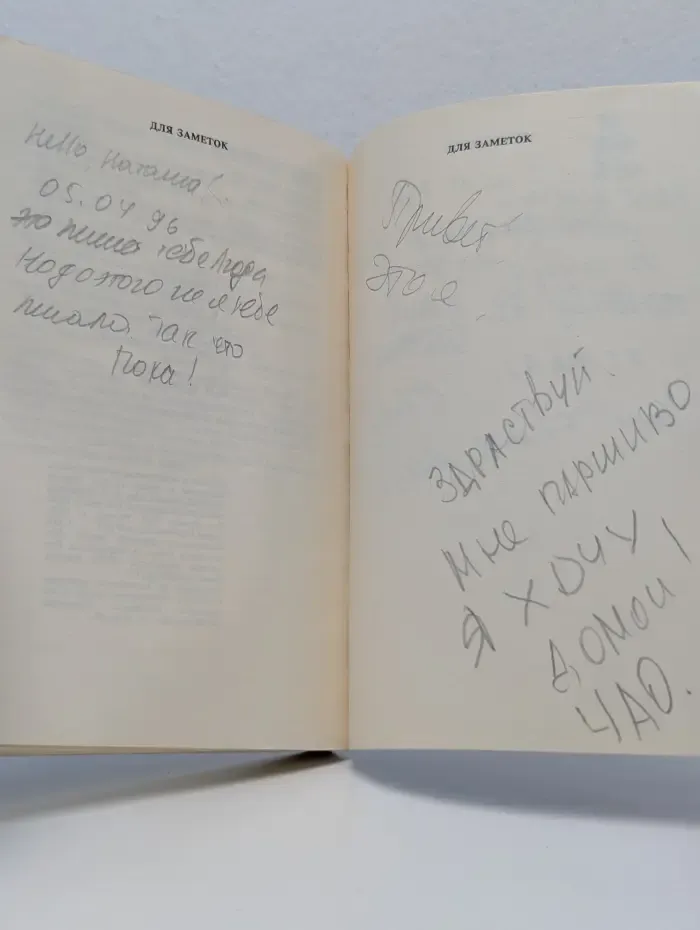 ДЛЯ ЗАМЕТОК
Hello Наташа!
05.04 96
это пишу тебе
Но до этого не я тебе
писала. Так что
Пока!
ДЛЯ ЗАМЕТОК
Привет
Это я
ЗДРАСТВУЙ.
МНЕ ПАРШИВО
Я ХОЧУ
ДОМОЙ!
ЧАО.